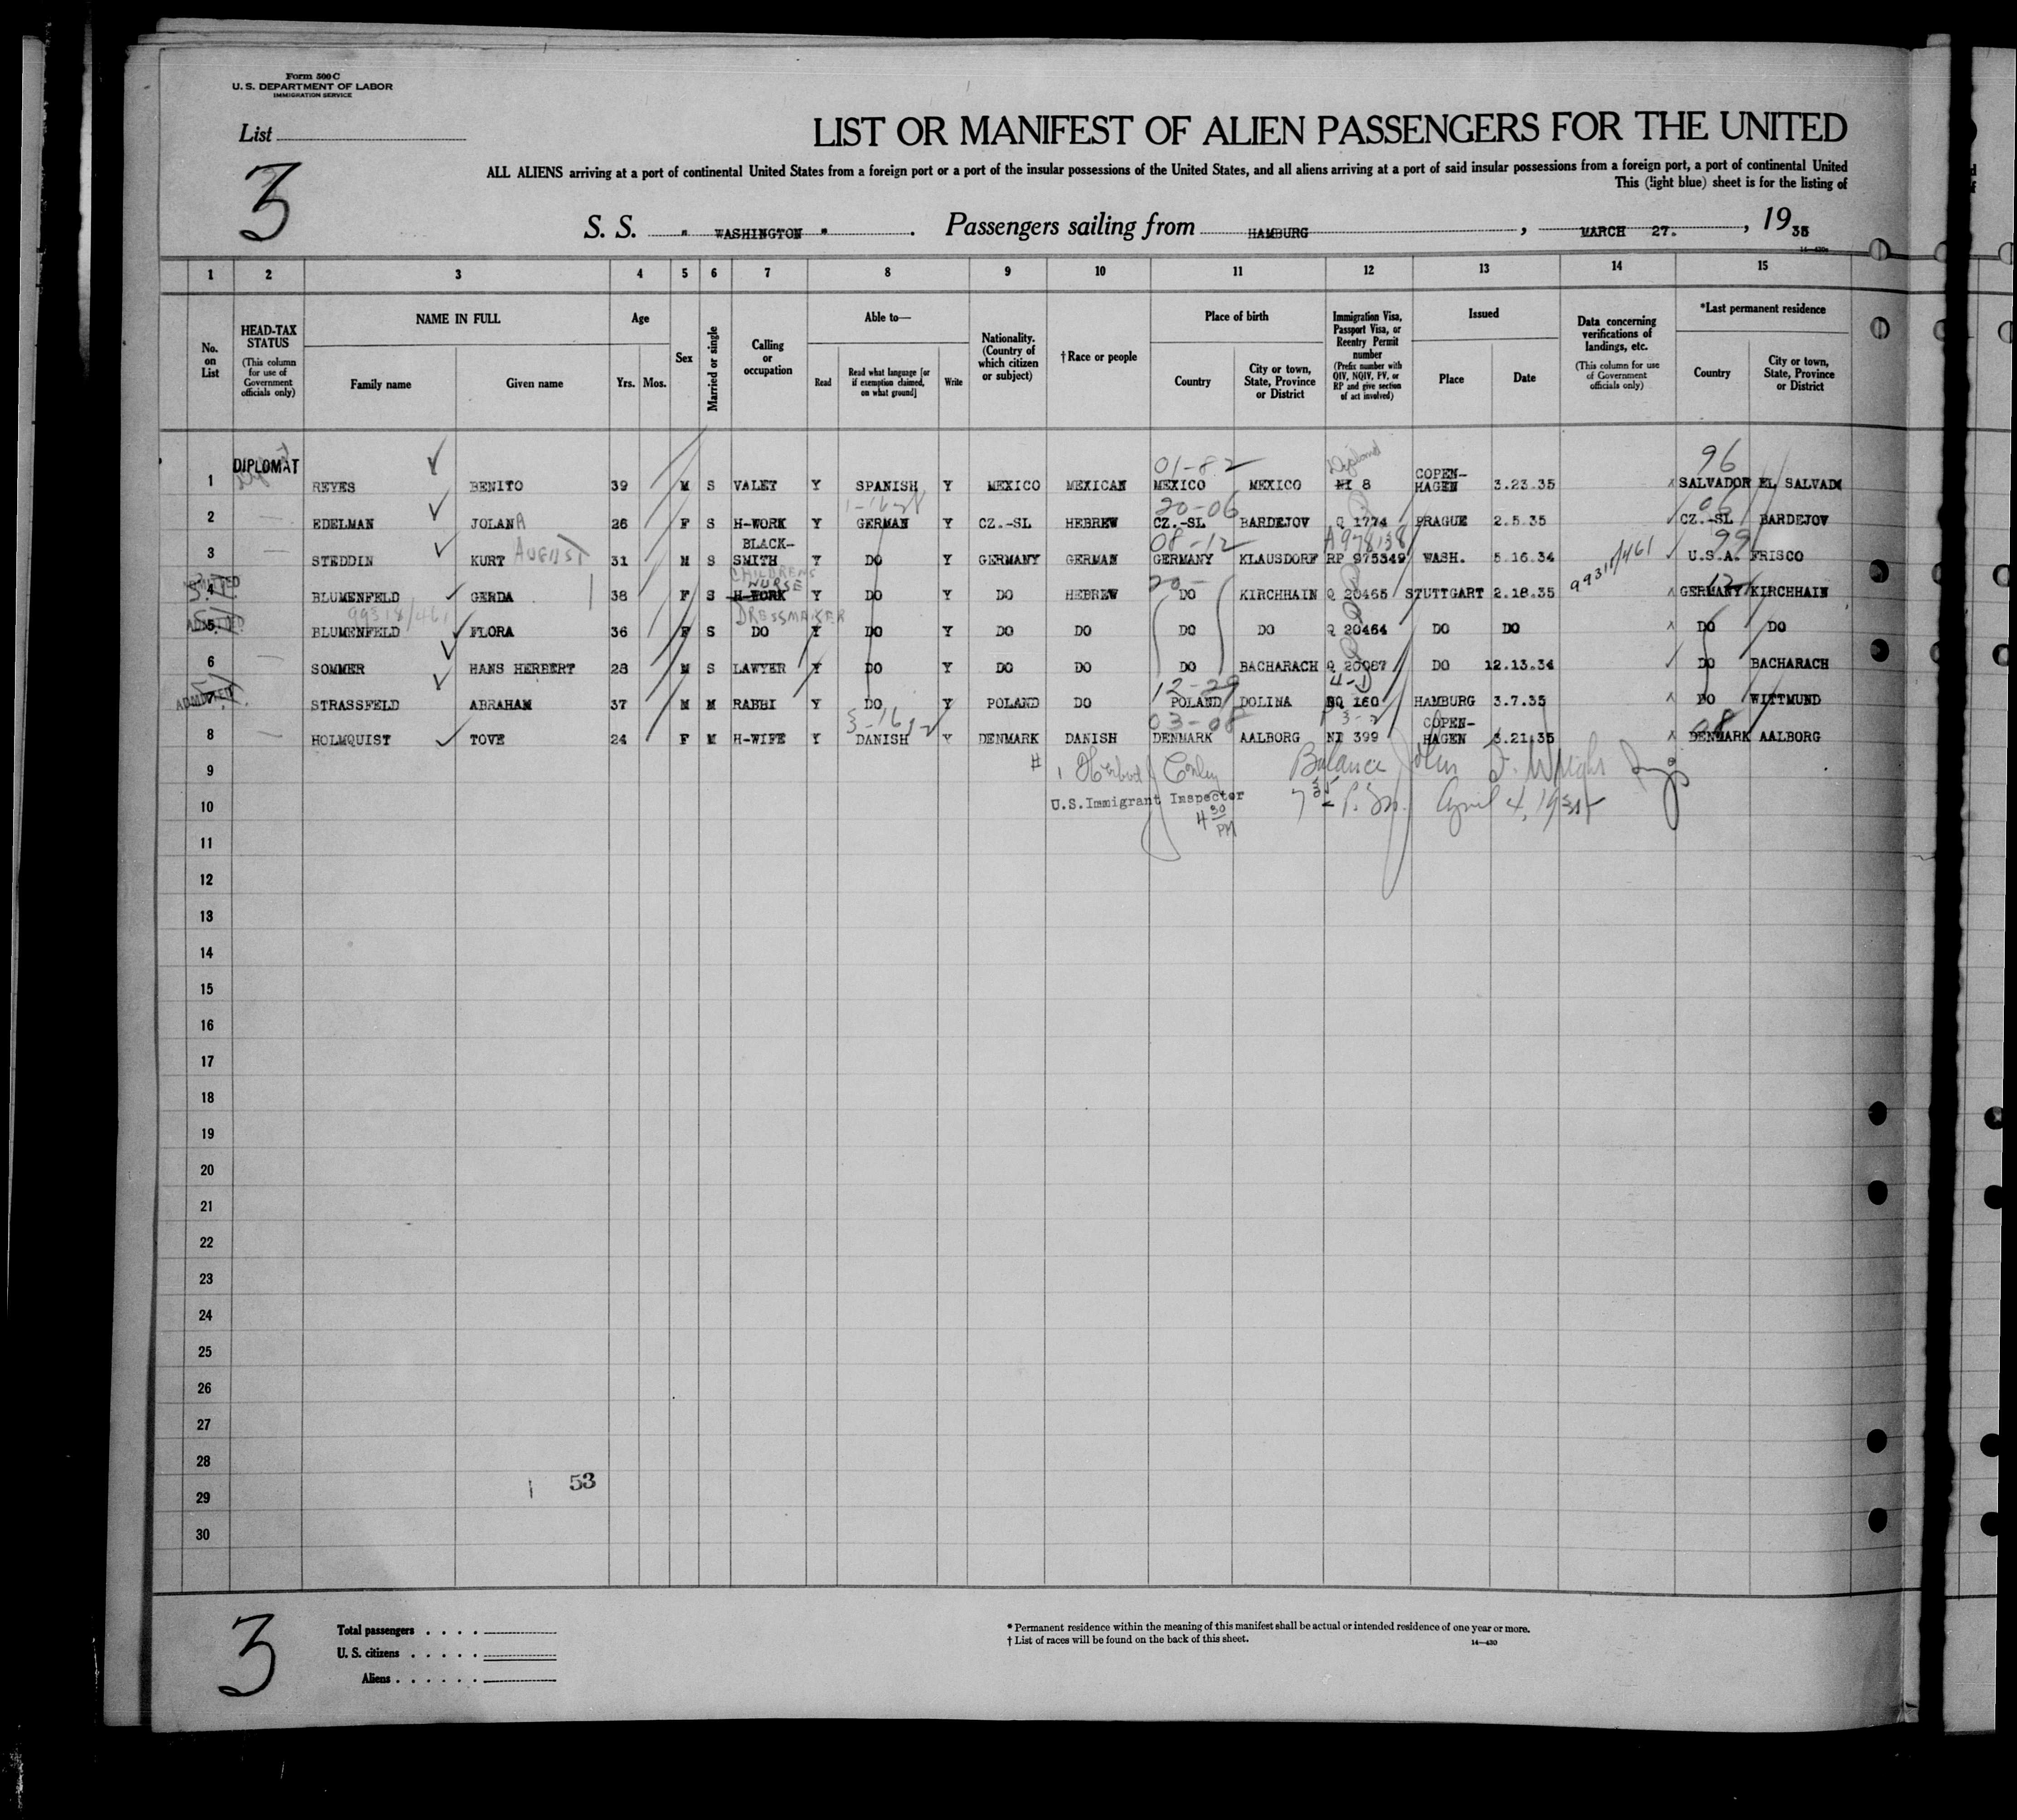 Form 500 C
U. S. DEPARTMENT OF LABOR
IMMIGRATION SERVICE
List
3
LIST OR MANIFEST OF ALIEN PASSENGERS FOR THE UNITED
ALL ALIENS arriving at a port of continental United States from a foreign port or a port of the insular possessions of the United States, and all aliens arriving at a port of said insular possessions from a foreign port, a port of continental United
This (light blue) sheet is for the listing of
S. S. " WASHINGTON " . Passengers sailing from HAMBURG , MARCH 27. , 19 35
1 2 3 4 5 6 7 8 9 10 11 12 13 14 15
No. on List
HEAD-TAX STATUS (This column for use of Government officials only)
NAME IN FULL
Family name
Given name
Age
Yrs. Mos.
Sex
Married or single
Calling or occupation
Able to—
Read
Read what language [or if exemption claimed, on what ground]
Write
Nationality. (Country of which citizen or subject)
†Race or people
Place of birth
Country
City or town, State, Province or District
Immigration Visa, Passport Visa, or Reentry Permit number (Prefix number with QIV, NQIV, PV, or RP and give section of act involved)
Issued
Place
Date
Data concerning verifications of landings, etc. (This column for use of Government officials only)
*Last permanent residence
Country
City or town, State, Province or District
01-82 96
1 DIPLOMAT REYES BENITO 39 M S VALET Y SPANISH Y MEXICO MEXICAN MEXICO MEXICO NI 8 COPEN-HAGEN 3.23.35 SALVADOR EL SALVADO
20-06 06
2 EDELMAN JOLANA 26 F S H-WORK Y GERMAN Y CZ.-SL HEBREW CZ.-SL BARDEJOV Q 1774 PRAGUE 2.5.35 CZ.-SL BARDEJOV
08-12 A978138 99
3 STEDDIN KURT AUGUST 31 M S BLACK-SMITH Y DO Y GERMANY GERMAN GERMANY KLAUSDORF RP 975349 WASH. 5.16.34 U.S.A. FRISCO
CHILDRENS NURSE 20- 99318/461 12
4 ADMITTED BLUMENFELD GERDA 38 F S H-WORK Y DO Y DO HEBREW DO KIRCHHAIN Q 20465 STUTTGART 2.18.35 GERMANY KIRCHHAIN
99318/461 DRESSMAKER
5 ADMITTED BLUMENFELD FLORA 36 F S DO Y DO Y DO DO DO DO Q 20464 DO DO DO DO
6 SOMMER HANS HERBERT 28 M S LAWYER Y DO Y DO DO DO BACHARACH Q 20087 DO 12.13.34 DO BACHARACH
12-29 4-D
7 ADMITTED STRASSFELD ABRAHAM 37 M M RABBI Y DO Y POLAND DO POLAND DOLINA NQ 160 HAMBURG 3.7.35 DO WITTMUND
03-08 3-2 08
8 HOLMQUIST TOVE 24 F M H-WIFE Y DANISH Y DENMARK DANISH DENMARK AALBORG NI 399 COPEN-HAGEN 3.21.35 DENMARK AALBORG
9 # 1 Conley Balance John F. Wright Insp
10 U.S. Immigrant Inspector 7 35 P.M. April 4, 1935
4 30 PM
11
12
13
14
15
16
17
18
19
20
21
22
23
24
25
26
27
28
53
29
30
3
Total passengers
U. S. citizens
Aliens
* Permanent residence within the meaning of this manifest shall be actual or intended residence of one year or more.
† List of races will be found on the back of this sheet.
14—430